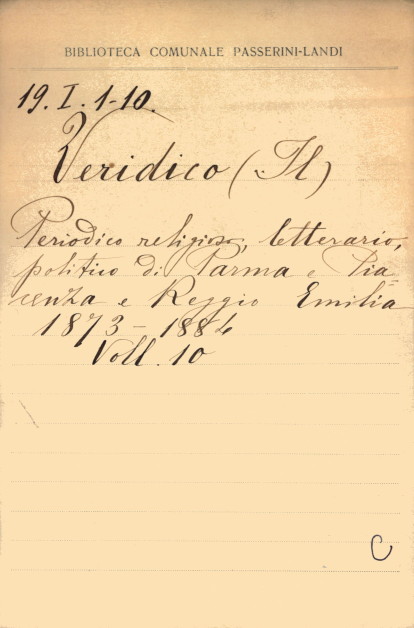 BIBLIOTECA COMUNALE PASSERINI-LANDI
19. I. 1-10.
Veridico (Il)
Periodico religioso, letterario,
politico di Parma e Pia=
cenza e Reggio Emilia
1873 - 1884
Voll. 10
C